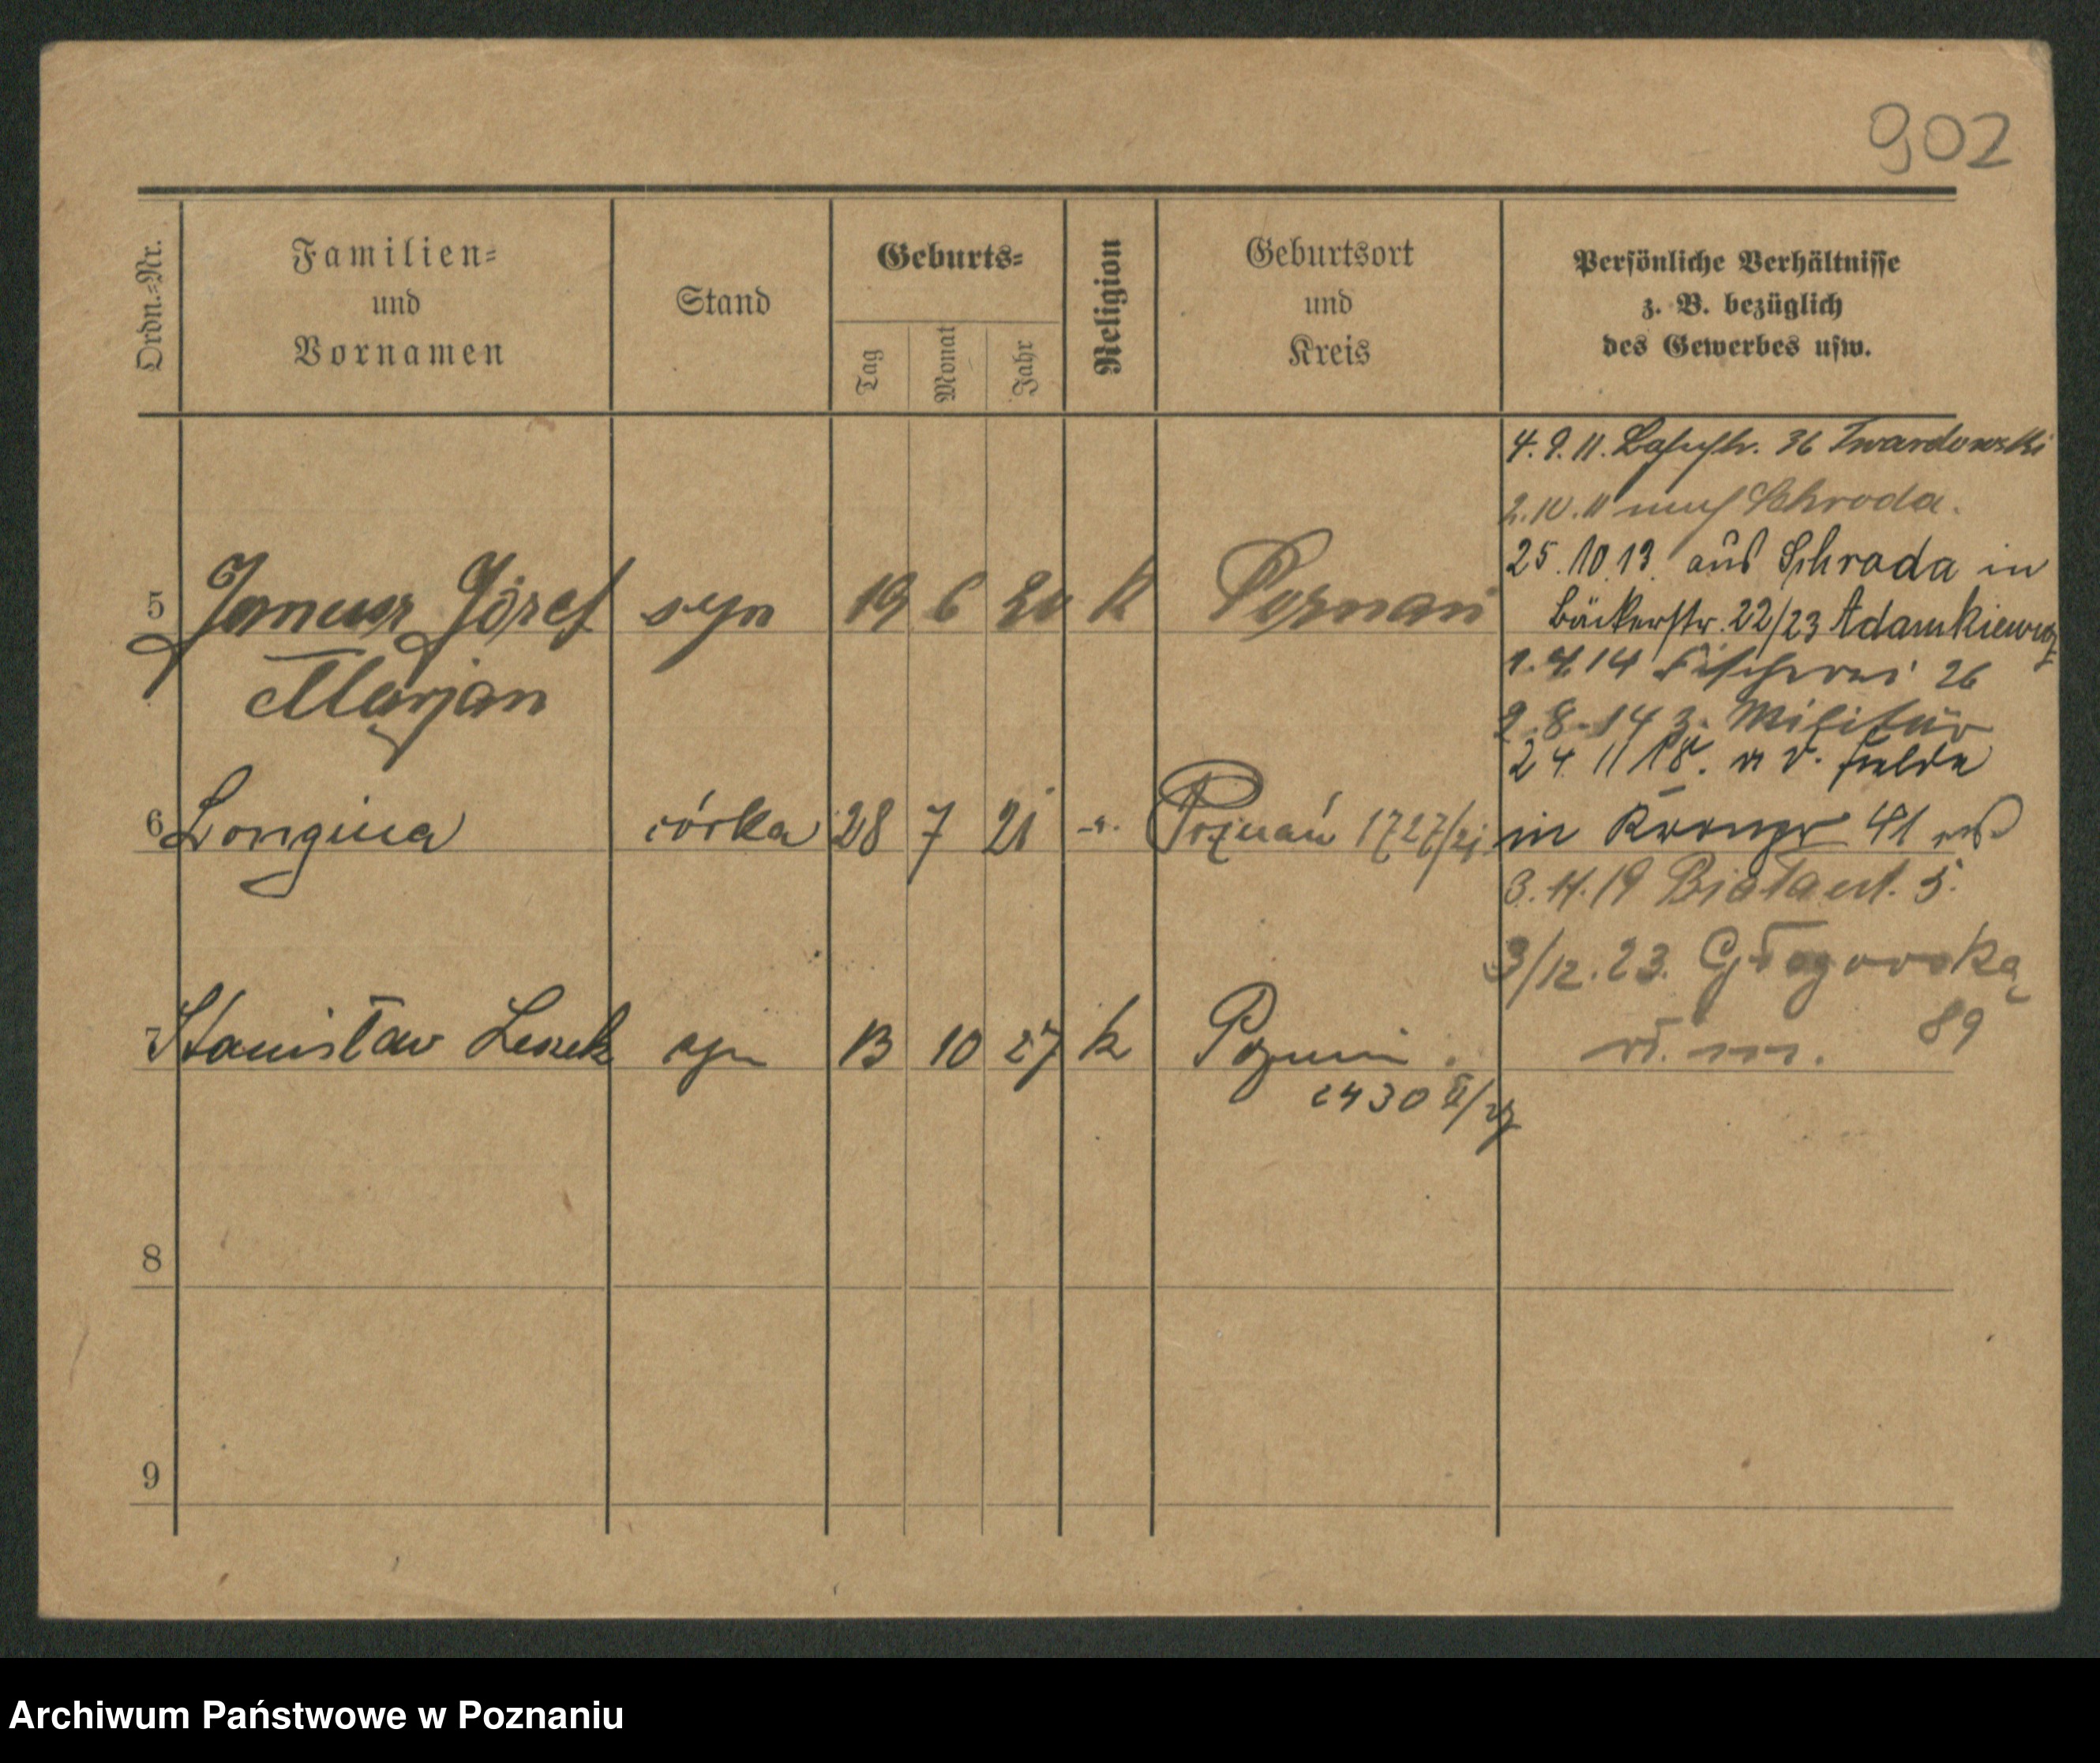 902
Ordn.-Nr.
Familien-
und
Vornamen
Stand
Geburts-
Tag
Monat
Jahr
Religion
Geburtsort
und
Kreis
Persönliche Verhältnisse
z. B. bezüglich
des Gewerbes usw.
4. 9. 11. 36 Twardowski
2. 10. 11 nach Schroda.
25. 10. 13. aus Schroda in
Bäckerstr. 22/23 Adamkiewicz
5 Janusz Józef syn 19 6 20 k Poznań
Marjan
1. 4. 14 Fischerei 26
2. 8. 14 z. Militär
24 11 18. a d. Felde
6 Longina córka 28 7 21 Poznań 1727/21
in 41
3. 11. 19 5.
3/12. 23. Głogowska
89
wł. m.
7 Stanisław Leszek syn 13 10 27 k Poznań
2430 II/27
8
9
Archiwum Państwowe w Poznaniu